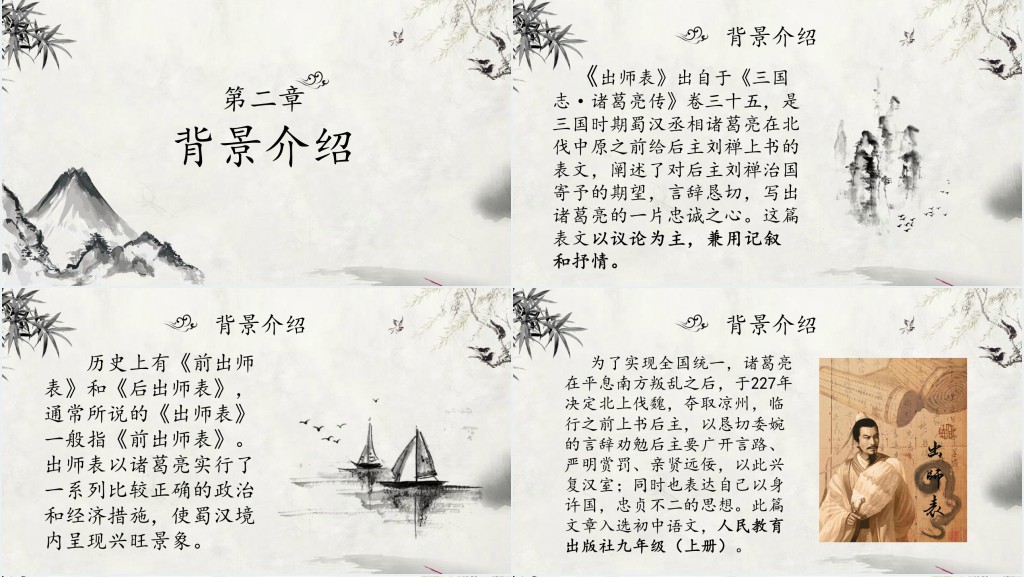 第二章
背景介绍
背景介绍
《出师表》出自于《三国
志·诸葛亮传》卷三十五，是
三国时期蜀汉丞相诸葛亮在北
伐中原之前给后主刘禅上书的
表文，阐述了对后主刘禅治国
寄予的期望，言辞恳切，写出
诸葛亮的一片忠诚之心。这篇
表文以议论为主，兼用记叙
和抒情。
背景介绍
历史上有《前出师
表》和《后出师表》，
通常所说的《出师表》
一般指《前出师表》。
出师表以诸葛亮实行了
一系列比较正确的政治
和经济措施，使蜀汉境
内呈现兴旺景象。
背景介绍
为了实现全国统一，诸葛亮
在平息南方叛乱之后，于227年
决定北上伐魏，夺取凉州，临
行之前上书后主，以恳切委婉
的言辞劝勉后主要广开言路、
严明赏罚、亲贤远佞，以此兴
复汉室；同时也表达自己以身
许国，忠贞不二的思想。此篇
文章入选初中语文，人民教育
出版社九年级（上册）。
出师表